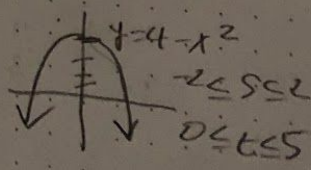 y=4-x²
-2≤s≤2
0≤t≤5